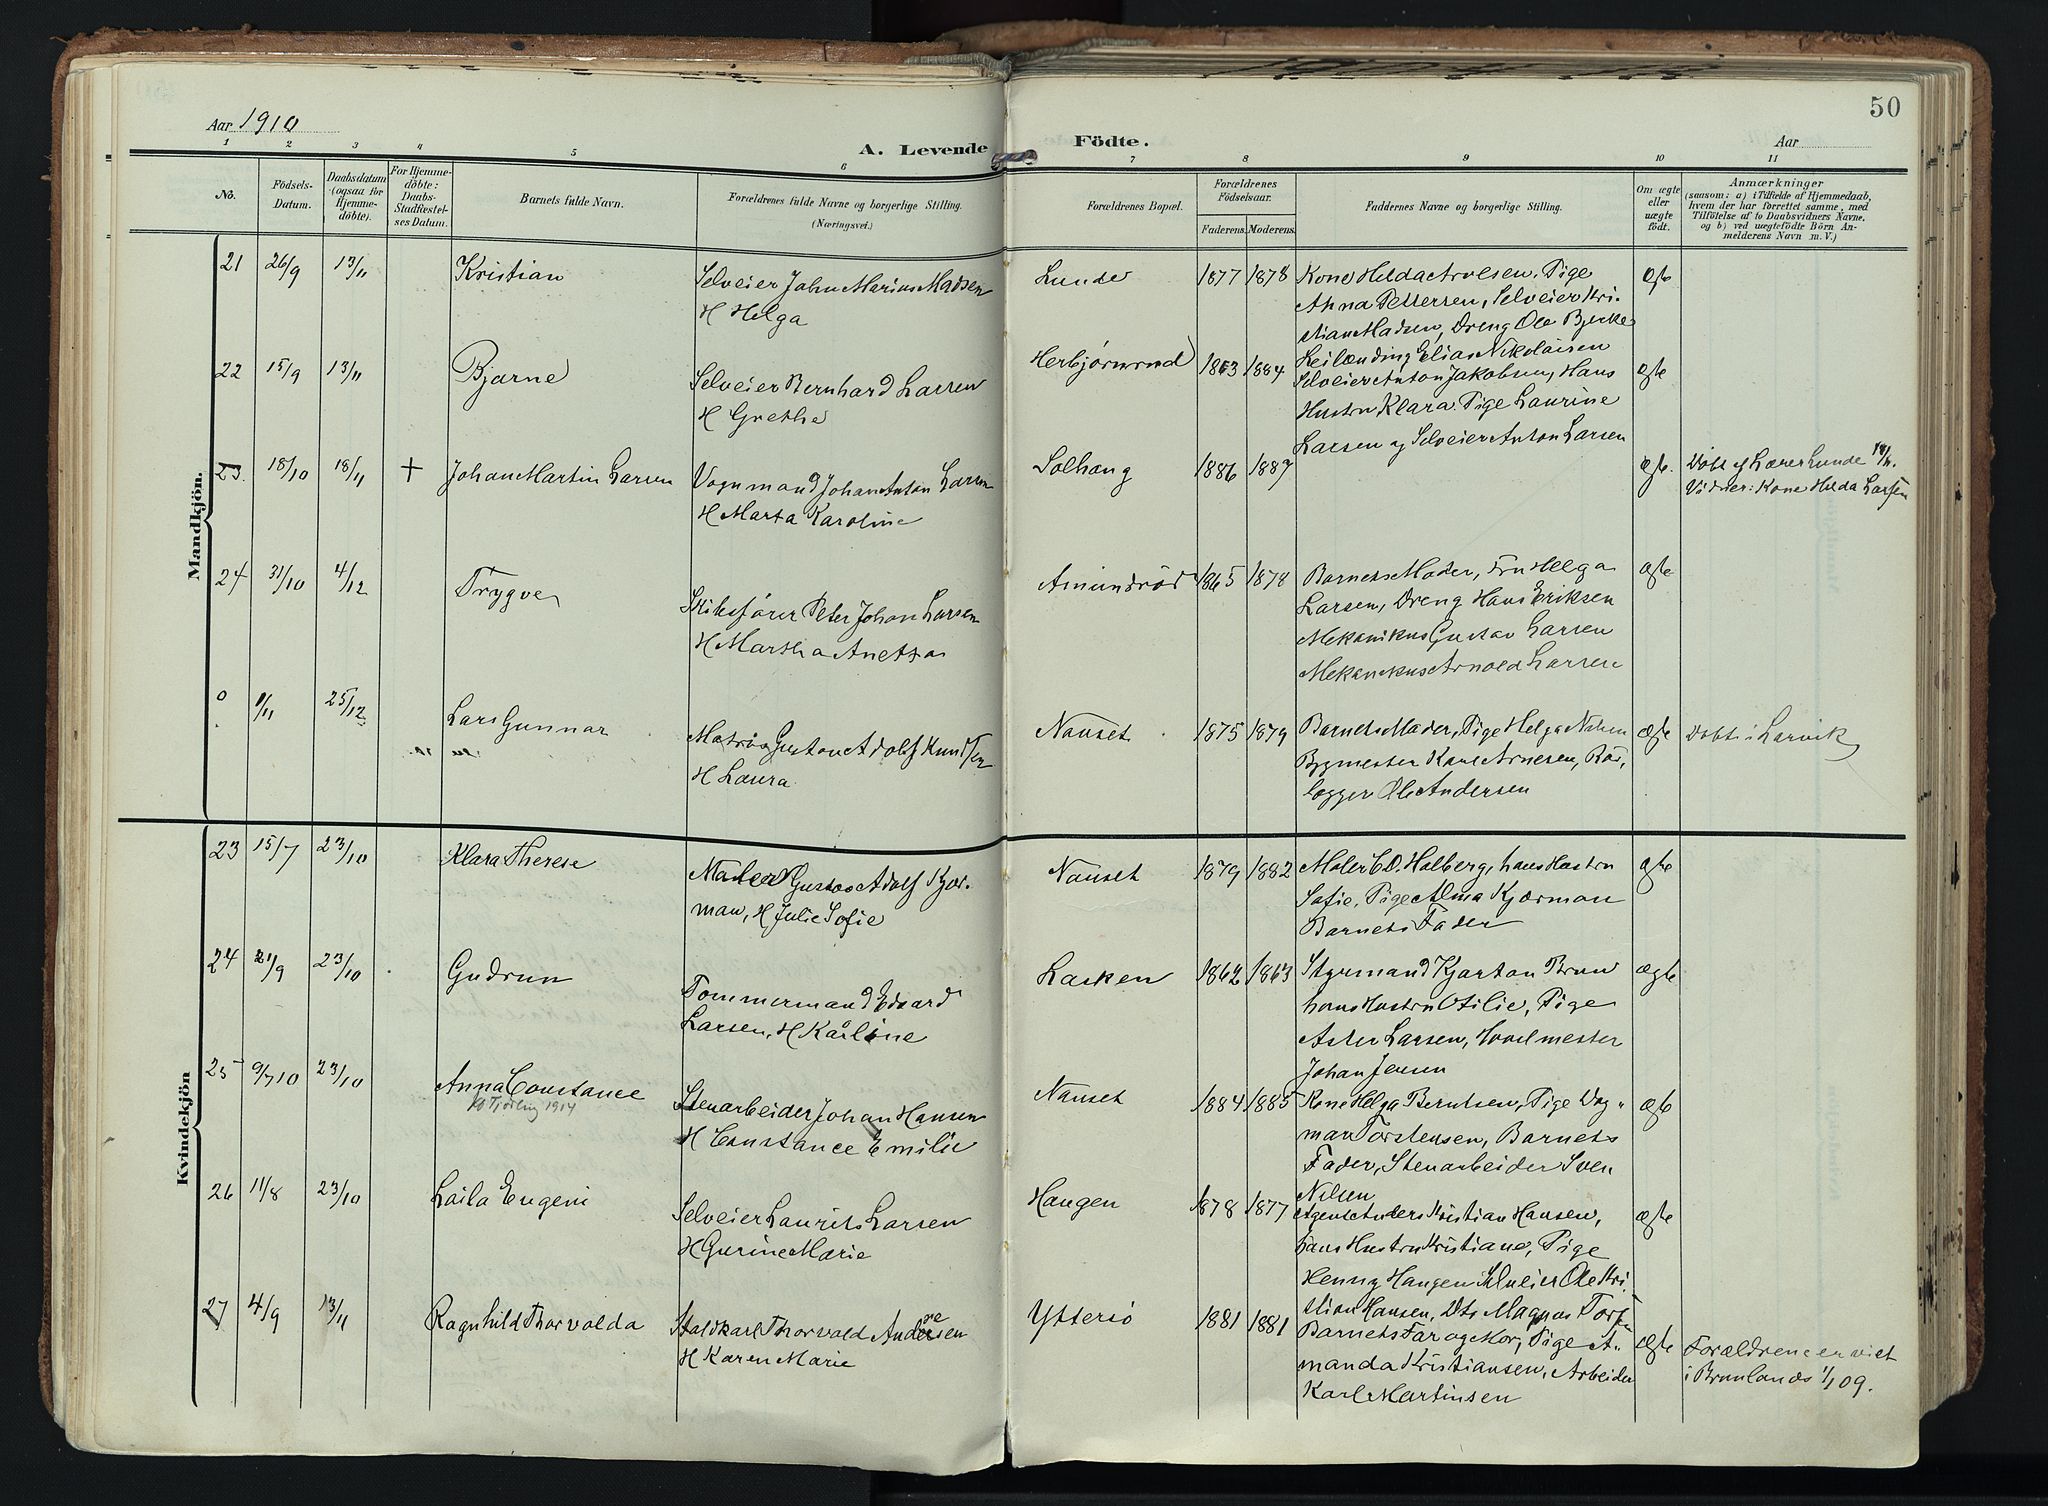 50
Aar 1910
A. Levende Födte.
Aar
1 2 3 4 5 6 7 8 9 10 11
No.
Födsels-
Datum.
Daabsdatum
(ogsaa for
Hjemme-
döbte).
For Hjemme-
döbte:
Daabs-
Stadfæstel-
ses Datum.
Barnets fulde Navn.
Forældrenes fulde Navne og borgerlige Stilling.
(Næringsvei.)
Forældrenes Bopæl.
Forældrenes
Födselsaar.
Faderens. Moderens.
Faddernes Navne og borgerlige Stilling.
Om ægte
eller
uægte
födt.
Anmærkninger
(saasom: a) i Tilfælde af Hjemmedaab,
hvem der har forrettet samme, med
Tilföielse af to Daabsvidners Navne,
og b) ved uægtefödte Börn An-
melderens Navn m. V.)
Mandkjön.
21 26/9 13/11 Kristian
Selveier Johan Marius Madsen
H Helga
Lunde 1877 1878
Kone Helda Arvesen, Pige
Anna Pettersen, Selveier Kri-
stian Madsen, Dreng Ole Bjerke
Leilænding Elias Nikolaisen
ægte
22 15/9 13/11 Bjarne
Selveier Bernhard Larsen
H Grethe
Herbjørnrød 1883 1884
Selveier Anton Jakobsen, Hans
Hustru Klara. Pige Laurine
Larsen og Selveier Anton Larsen
ægte
23 18/10 18/11 + Johan Martin Larsen
Vognmand Johan Anton Larsen
H Marta Karoline
Solhaug 1886 1887
ægte.
Døbt af Lærer Lunde 18/11.
Vidner: Kone Hilda Larsen
24 31/10 4/12 Trygve
Skibsfører Peter Johan Larsen
H Martha Anetta
Amundrød 1865 1878
Barnets Moder, Fru Helga
Larsen, Dreng Hans Eriksen
Mekanikus Gustav Larsen
Mekanikus Arnold Larsen
ægte
0 9/11 25/12 Lars Gunnar
Matros Gustav Adolf Knudsen
H Laura
Nanset 1875 1879
Barnets Moder, Pige Helga Nilsen
Bygmester Karl Arnesen, Rør,
lægger Ole Andersen
ægte
Døbt i Larvik
Kvindekjön
23 15/7 23/10 Klara Therese
Maler Gustav Adolf Kjær-
man, H Julie Sofie
Nanset 1879 1882
Maler C.D. Halberg, hans Hustru
Sofie, Pige Alma Kjærman
Barnets Fader
ægte
24 21/9 23/10 Gudrun
Tømmermand Edvard
Larsen, H Karline
Lasken 1862 1863
Styrmand Kjartan Bruu
hans Hustru Otilie, Pige
Aster Larsen, Hvelmester
Johan Jensen
ægte
25 9/7 10 23/10 Anna Constance
Tjølling 1914
Stenarbeider Johan Hansen
H Constance Emilie
Nanset 1884 1885
Kone Helga Berntsen, Pige Dag-
mar Torstensen, Barnets
Fader, Stenarbeider Sven
Nilsen
ægte
26 11/8 23/10 Laila Eugeni
Selveier Laurits Larsen
H Gurine Marie
Haugen 1878 1877
Agent Anders Kristian Hansen,
hans Hustru Kristiane, Pige
Henny Haugen Selveier Ole Kri
stian Hansen, Do Magnus
ægte
27 4/9 13/11 Ragnhild Thorvalda
Staldkarl Thorvald Andersen
H Karen Marie
Yttersö 1881 1881
Barnets Far og Mor, Pige A-
manda Kristiansen, Arbeider
Karl Martinsen
ægte
Forældrene er viet
i Brunlanæs 1/1 09.